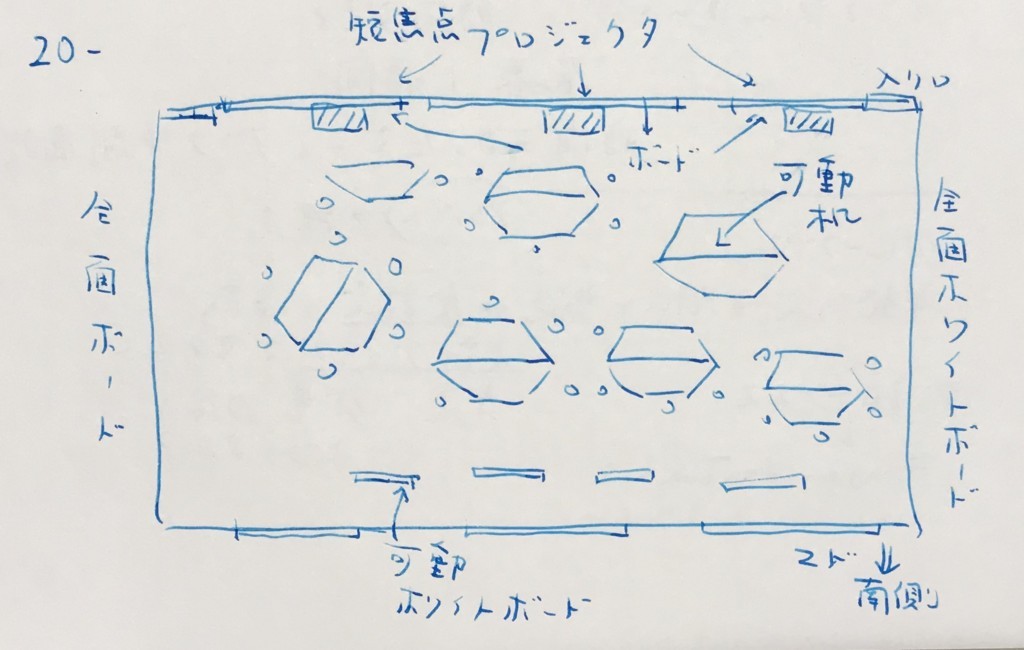 20-
短焦点プロジェクタ
入り口
ボード
可動
机
全面ボード
全面ホワイトボード
可動
ホワイトボード
マド
南側